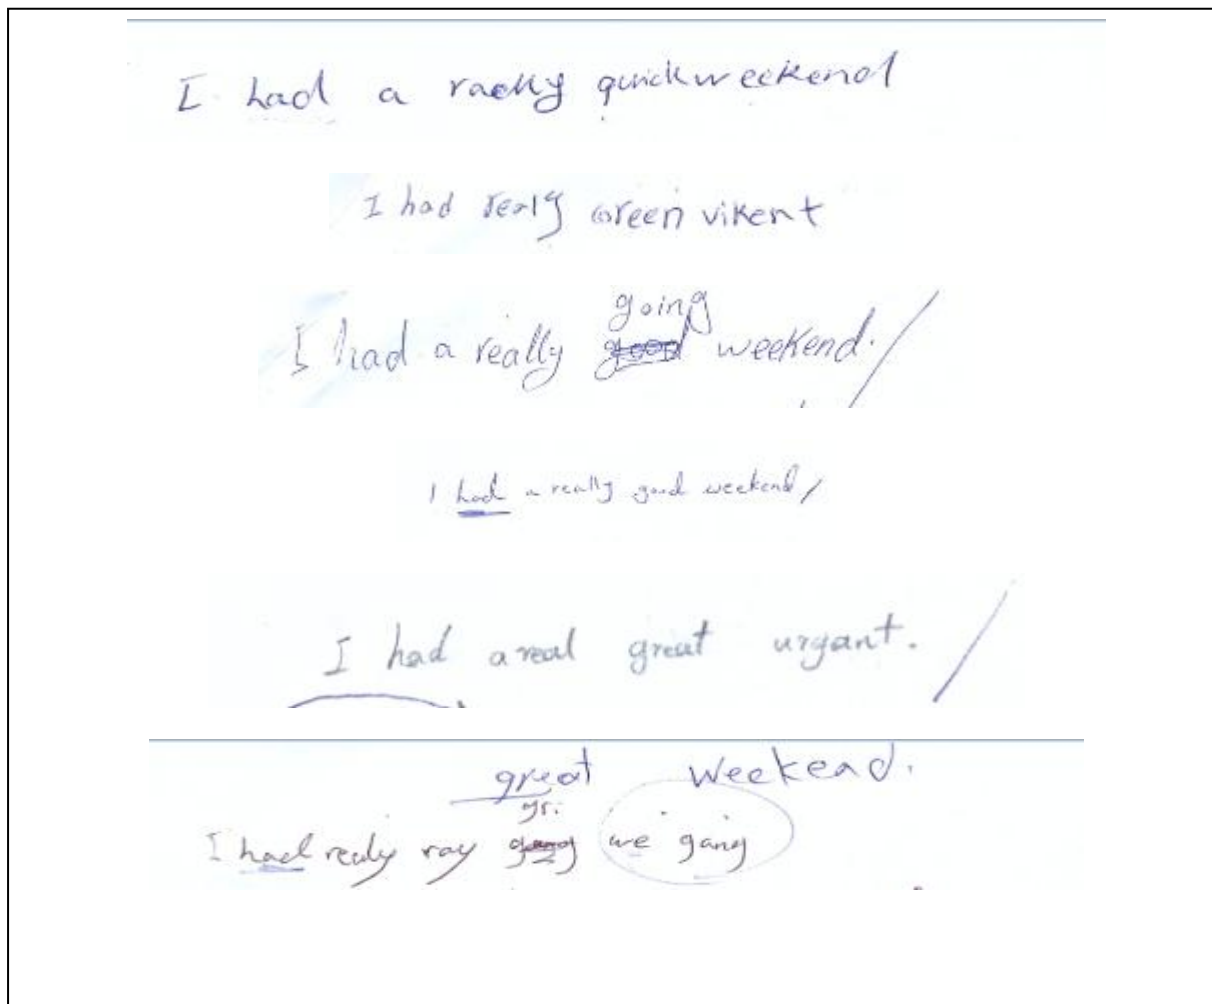 I had a racky quickweekend
I had realy Green vikent
going
I had a really good weekend.
I had a really good weekend
I had a real great urgant.
great weekead.
gr.
I had realy ray we gang